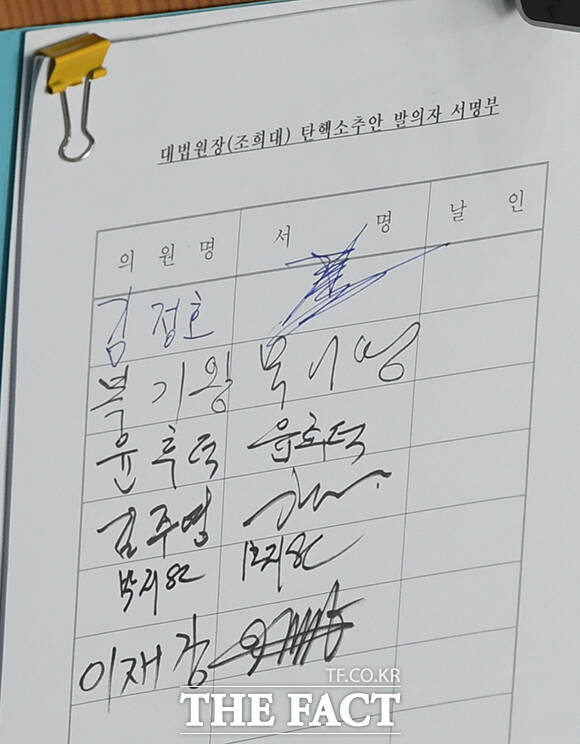 대법원장(조희대) 탄핵소추안 발의자 서명부
의원명 서명 날인
김정호
복기왕 복기왕
윤후덕 윤후덕
김주영
박지원 박지원
이재강
TF.CO.KR
THE FACT